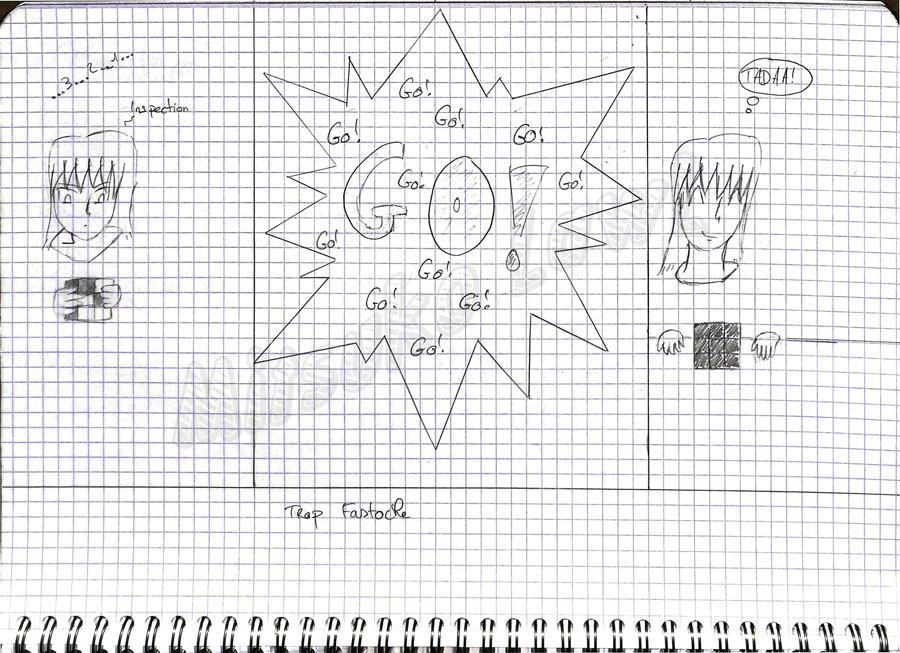 ...3...2...1...
Inspection
Go!
Go!
Go!
Go!
GO!
Go!
Go!
Go!
Go!
Go!
Go!
Go!
TADAA!
Trop Fastoche